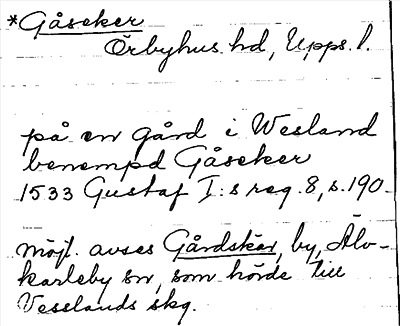 *Gåseker
Örbyhus hd, Upps. l.
på en gård i Wesland
benempd Gåseker
1533 Gustaf I:s reg. 8, s. 190.
möjl. avses Gårdskär, by, Älv-
karleby sn, som hörde till
Vesslands skg.